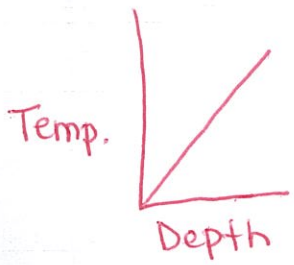 Temp.
Depth